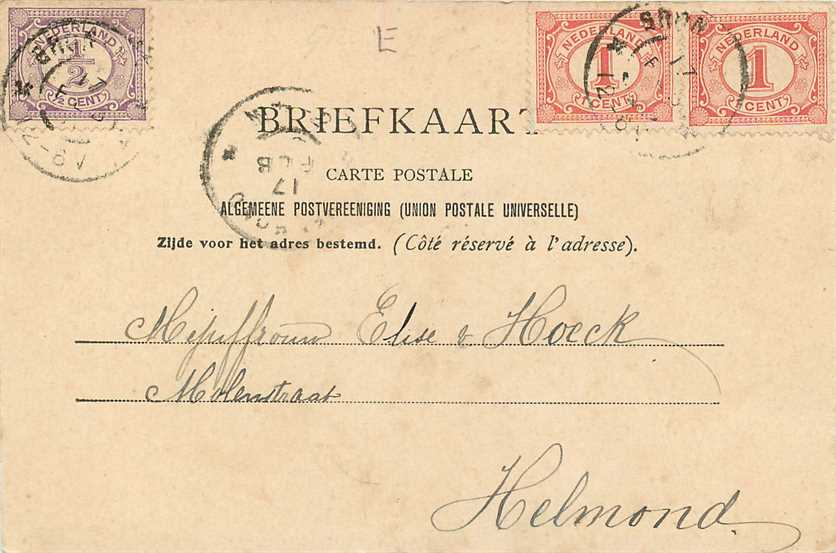 NEDERLAND
½
½ CENT
E
NEDERLAND
1
CENT
NEDERLAND
1
CENT
BRIEFKAART
CARTE POSTALE
17
FEB
ALGEMEENE POSTVEREENIGING (UNION POSTALE UNIVERSELLE)
Zijde voor het adres bestemd. (Côté réservé à l'adresse).
Mejuffrouw Elise v Hoeck
Molenstraat
Helmond